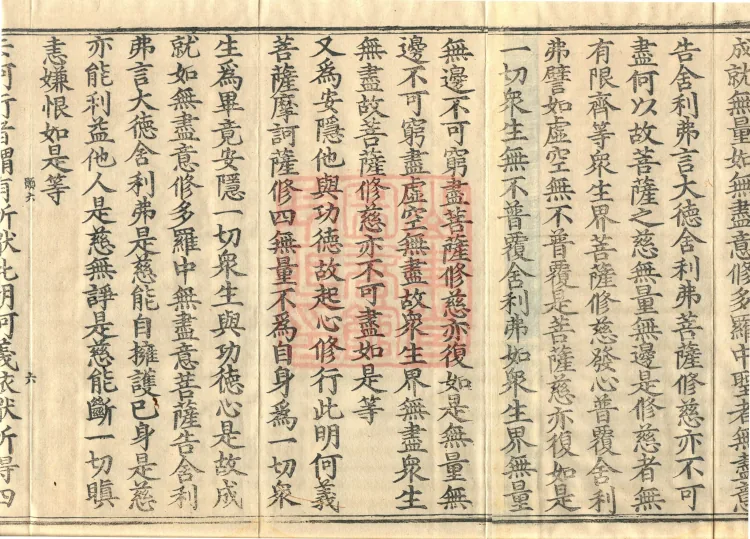 成就無量如無盡意修多羅中聖者無盡意
告舍利弗言大德舍利弗菩薩修慈亦不可
盡何以故菩薩之慈無量無邊是修慈者無
有限齊等衆生界菩薩修慈發心普覆舍利
弗譬如虛空無不普覆是菩薩慈亦復如是
一切衆生無不普覆舍利弗如衆生界無量
無邊不可窮盡菩薩修慈亦復如是無量無
邊不可窮盡虛空無盡故衆生界無盡衆生
無盡故菩薩修慈亦不可盡如是等
又爲安隱他與功德故起心修行此明何義
菩薩摩訶薩修四無量不爲自身爲一切衆
生爲畢竟安隱一切衆生與功德心是故成
就如無盡意修多羅中無盡意菩薩告舍利
弗言大德舍利弗是慈能自擁護己身是慈
亦能利益他人是慈無諍是慈能斷一切瞋
恚嫌恨如是等
六
六
云何行者謂有所此明何義依所得四